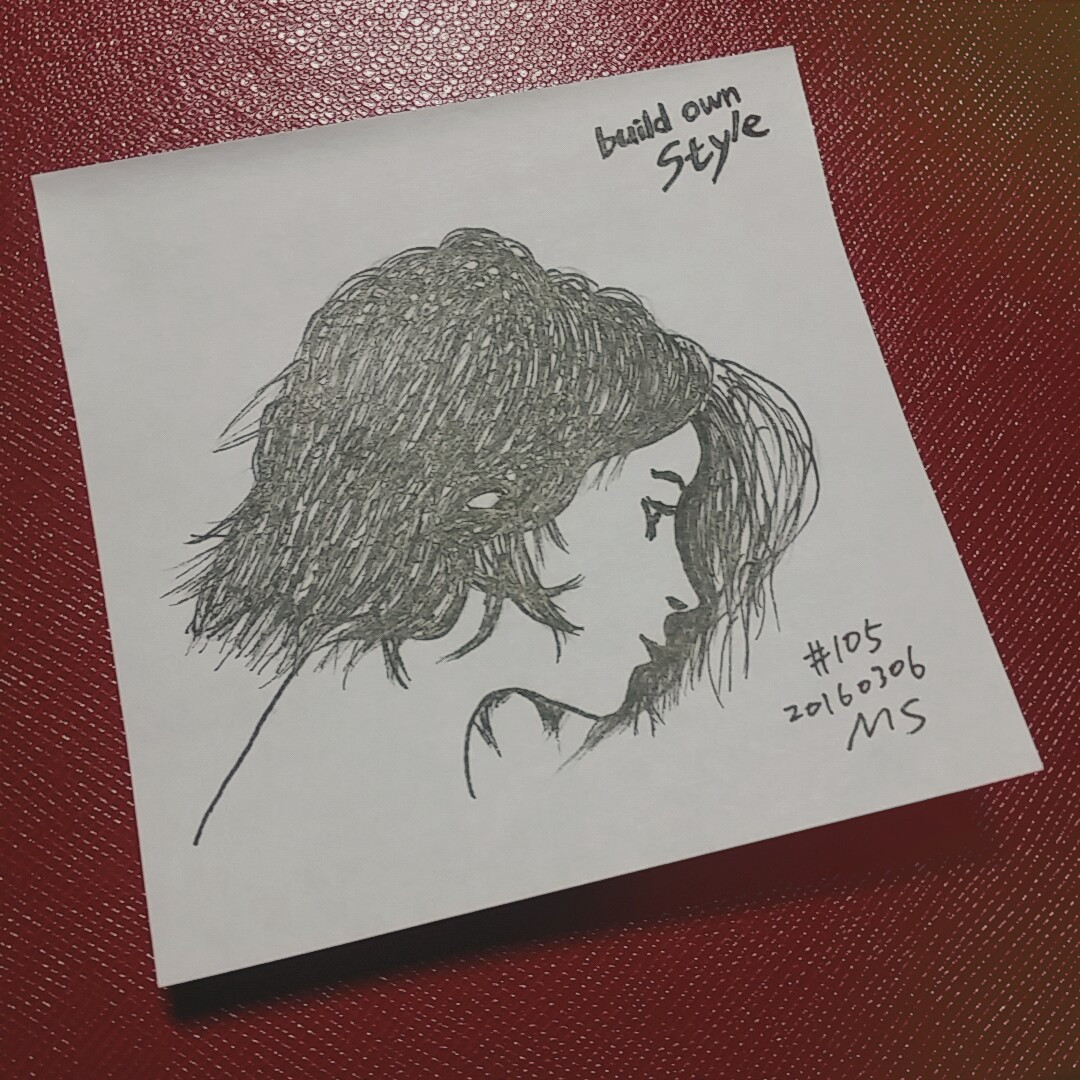 build own
Style
#105
20160306
MS